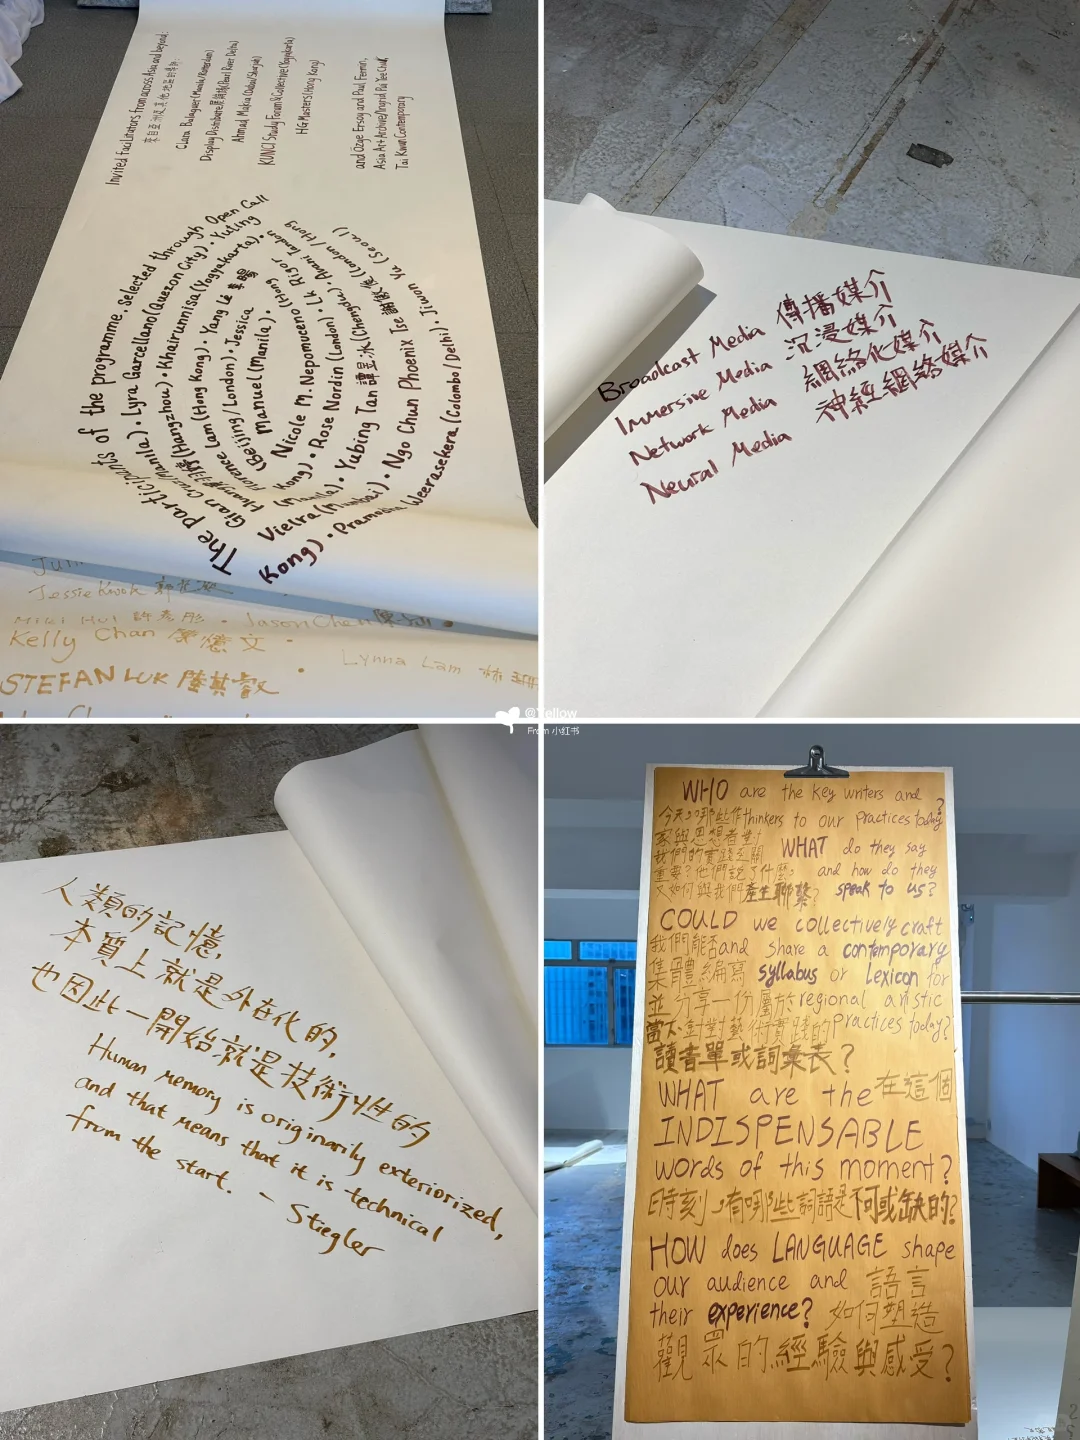 Invited facilitators from across Asia and beyond:
來自亞洲及其他地區的
Clara Balaguer (Manila/Rotterdam)
Display Distribute (Pearl River Delta)
Ahmad Makia (Dubai/Sharjah)
KUNCI Study Forum & Collective (Yogyakarta)
HG Masters (Hong Kong)
and Özge Ersoy and Paul Fermin,
Asia Art Archive/Ingrid Pui Yee Chu,
Tai Kwun Contemporary
The participants of the programme, selected through Open Call
Gian Cruz (Manila) • Lyra Garcellano (Quezon City) • Yuting
(Hangzhou) • Khairunnisa (Yogyakarta) •
Florence Lam (Hong Kong) • Yang Le
(Beijing/London) • Jessica
Manuel (Manila) •
Nicole M. Nepomuceno (Hong
Kong) • Rose Nordin (London) • Lk Rigor
(Manila) • Yubing Tan 譚昱冰 (Chengdu) •
Vieira (Mumbai) • Ngo Chun Phoenix Tse (London / Hong
Kong) • Pramodha Weerasekera (Colombo/Delhi) • Jiwon Yu (Seoul)
Jessie Kwok
Miki Hui 許彥彤 • Jason Chen
Kelly Chan
Lynna Lam 林
STEFAN LUK 陸其叡
Broadcast Media 傳播媒介
Immersive Media 沉浸媒介
Network Media 網絡化媒介
Neural Media 神經網絡媒介
@Yellow
From 小红书
人類的記憶,
本質上就是外在化的,
也因此一開始就是技術性的
Human memory is originarily exteriorized,
and that means that it is technical
from the start. - Stiegler
WHO are the key writers and
今天,哪些作 thinkers to our practices today?
家與思想者對
我們的實踐至關 WHAT do they say
重要?他們說了什麼, and how do they
又如何與我們產生聯繫? speak to us?
COULD we collectively craft
我們能否 and share a contemporary
集體編寫 syllabus or lexicon for
並分享一份屬於 regional artistic
當下,對對藝術實踐的 practices today?
讀者單或詞彙表?
WHAT are the 在這個
INDISPENSABLE
words of this moment?
時刻,有哪些詞語是不可或缺的?
HOW does LANGUAGE shape
our audience and 語言
their experience? 如何塑造
觀眾的經驗與感受?